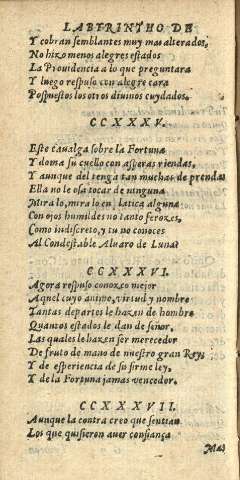 LABYRINTHO DE
Y cobran semblantes muy mas alterados,
No hizo menos alegres estados
La Prouidencia a lo que preguntara
Y luego respuso con alegre cara
Pospuestos los otros diuinos cuydados.
CCXXXV.
Este caualga sobre la Fortuna
Y doma su cuello con asperas riendas,
Y aunque del tenga tan muchas de prendas
Ella no le osa tocar de ninguna
Miralo, miralo en platica alguna
Con ojos humildes no tanto feroxes,
Como indiscreto, y tu no conoces
Al Condestable Aluaro de Luna?
CCXXXVI.
Agora respuso conozco mejor
Aquel cuyo animo, virtud y nombre
Tantas de partes le hazen de hombre
Quantos estados le dan de señor,
Las quales le hazen ser merecedor
De fruto de mano de nuestro gran Rey,
Y de esperiencia de su firme ley,
Y de la Fortuna jamas vencedor.
CCXXXVII.
Aunque la contra creo que sentian
Los que quisieron auer confiança
Mas